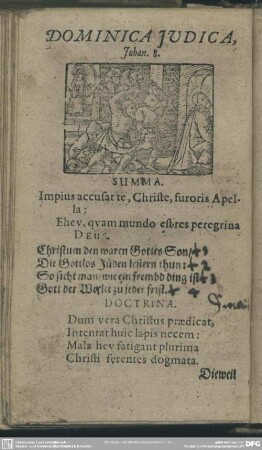 DOMINICA JVDICA,
Johan. 8.
SUMMA.
Impius accusat te, Christe, furoris Apel-
la:
Ehev, qvam mundo es res peregrina
DEUS.
Christum den waren Gottes Son/
Die Gottlos Jüden lestern thun:
So sicht man/ wie ein frembd ding ist
Gott der Welt zu jeder frist.
DOCTRINA.
Dum vera Christus prædicat,
Intentat huic lapis necem:
Mala hev fatigant plurima
Christi ferentes dogmata.
Dieweil
DFG